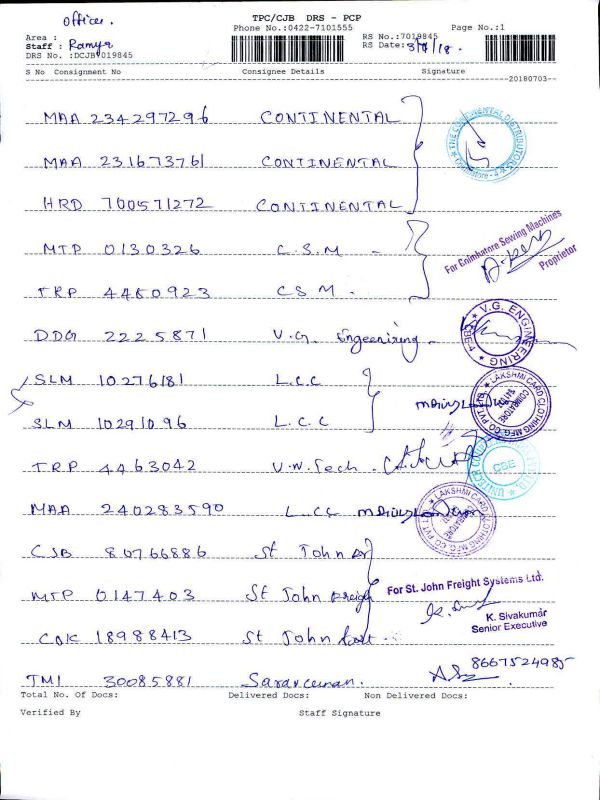 Office.
TPC/CJB DRS - PCP
Phone No.:0422-7101555 Page No.:1
Area :
Staff : Ramya
DRS No. :DCJB7019845
RS No.:7019845
RS Date:3/7/18.
S No Consignment No Consignee Details Signature
20180703
MAA 234297296 CONTINENTAL
MAA 231673761 CONTINENTAL
HRD 700571272 CONTINENTAL
THE CONTINENTAL DISTRIBUTORS
MTP 0130326 C.S.M -
TRP 4460923 CSM -
For Coimbatore Sewing Machines
Proprietor
DDG 2225871 V.G. Engeeniring
V.G. ENGINEERING
SLM 10276181 L.C.C
SLM 10291096 L.C.C
LAKSHMI CARD CLOTHING MFG. CO PVT. LTD.
COIMBATORE
TRP 4463042 U.W.Tech -
CBE
MAA 240283590 L.CC
LAKSHMI CARD CLOTHING MFG. CO PVT. LTD.
CJB 80766886 St John
MTP 0147403 St John Freigh
COK 18988413 St John
For St. John Freight Systems Ltd.
K. Sivakumar
Senior Executive
TMI 30085881 8667524985
Total No. Of Docs: Delivered Docs: Non Delivered Docs:
Verified By Staff Signature